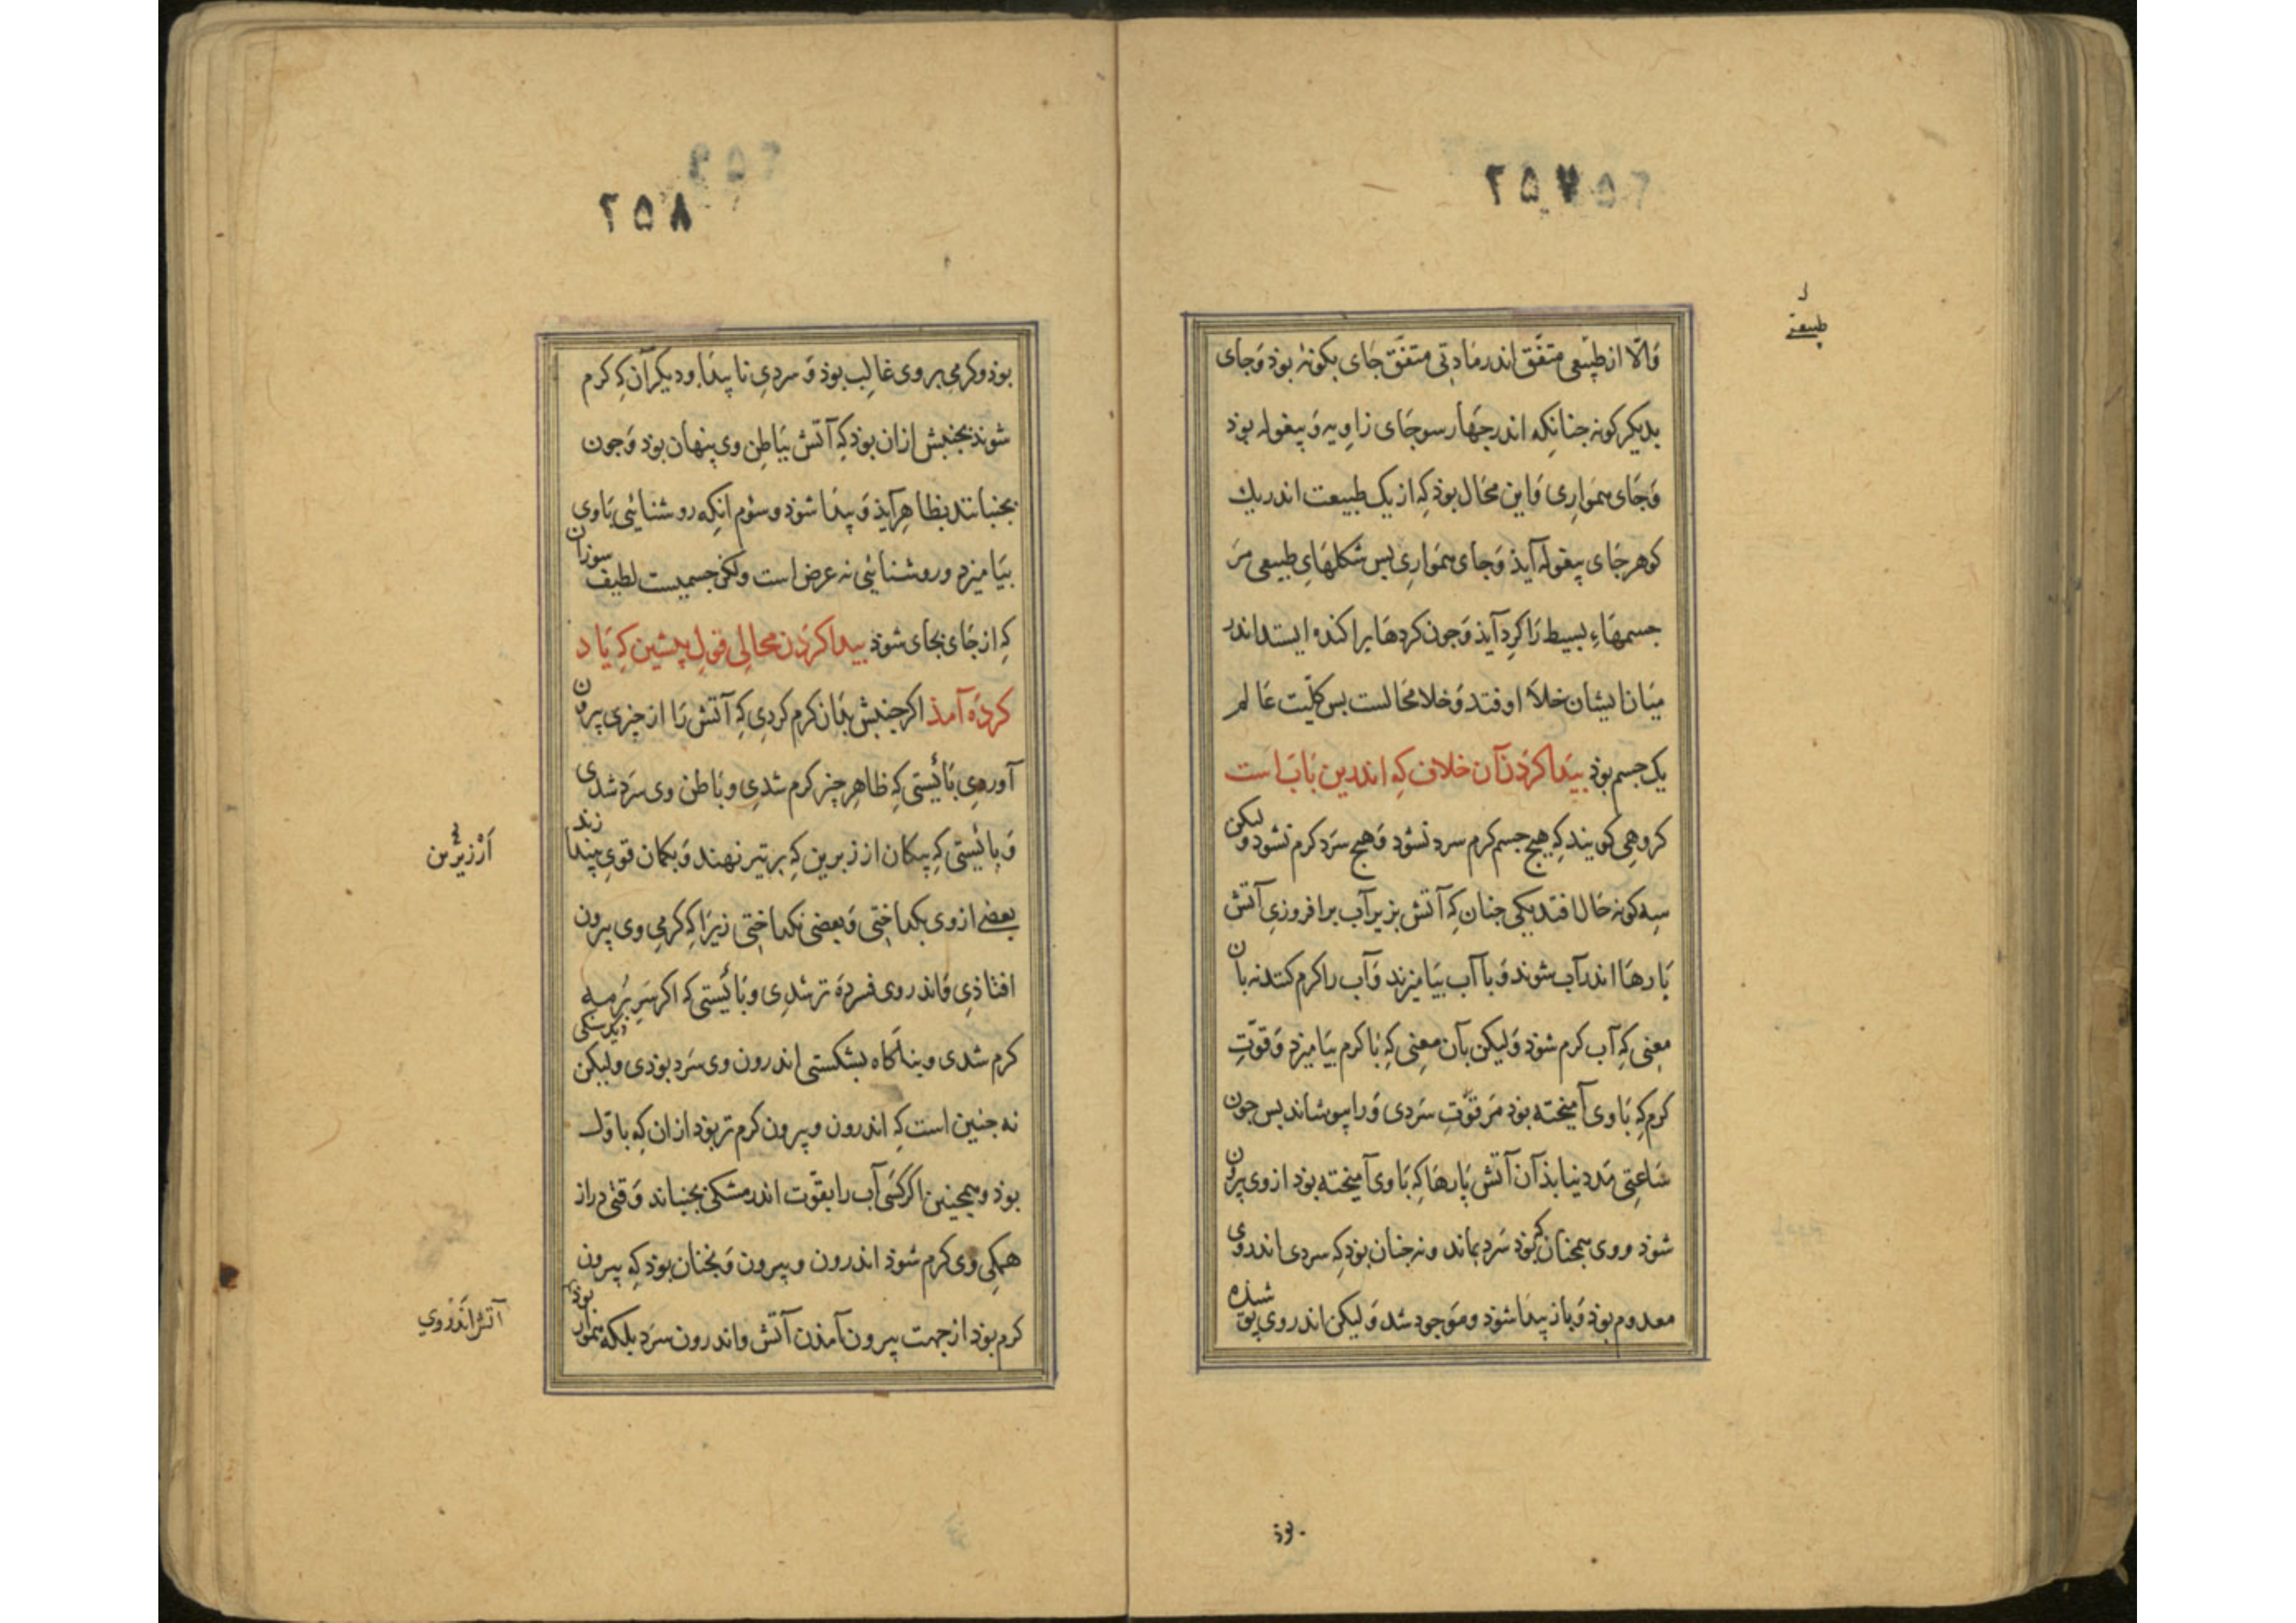 ۲۵۷
طبیعة
وَالّا از طبیعی متفّق اندر مادتی متفّق جَای بکونهٔ بوذ وَجای
بدیکر کونه جنانکه اندر جَهار سو جَای زاویه وَ پیغوله بوذ
وَجَای همَواری وَاین محَال بوذ کِه از یک طبیعت اندر یک
کوهر جَای پیغوله آیذ وَجَای همَوارِی بس شکلهَایِ طبیعی مرَ
جسمهَاءِ بسیط رَا کرِد آیذ وَجون کردهَا براکنده ایستد اندر
میَان ایشان خلأ اوفتد وَخلا محَالست بس کلّیت عَالم
یک جسم بوذ بیَدا کرَدن آن خلاف کِه اندرین بَابَ است
کروهِی کویند کِه هیج جسم کرم سرد نشوَد وَهیج سَرَد کرم نشود ولیکن
سِه کونه حَال افتد یکی جنان کِه آتش بزیر آب برافروزیِ آتش
بَارهَا اندر آب شوند وَبا آب بیَامیزند وَآب را کرم کنند نه بان
معِنی کِه آب کرم شوَذ وَلیکن بآن معِنی کِه بَا کرم بیَامیزد وَقوّتِ
کرم کِه بَاوی آمیخته بوَد مَر قوّتِ سَردی وَرا بپوشاند بس جون
سَاعتِی مَدد نیابذ آن آتش پَارهَا کِه بَاوی آمیخته بوَد از وی بیرون
شوَد و وی همجنان کِه بوَذ سَرد بماند و نه جنان بوَد کِه سردی اندروی
معدوم بوَذ وَباز پیدَا شوَد ومَوجود شد وَلیکن اندروی پوشیده
بوذ
۲۵۸
بوذ وکرمی بروی غالِب بوَذ وَسردی ناپیدَا ودیکر آن کِه کرم
شوند بجنبش ازان بوَد کِه آتش ببَاطِن وی پنهان بوَد وَجون
بجنبانند بظاهِر آیذ وَپیدَا شوَد وسوّم آنکِه روشنائی بَاوی
بیَامیزد و روشنائی نه عرض است ولکن جسمیست لطیف سوزان
کِه از جَای بجَای شوذ بیدا کرَدن محالِی قولِ پیشین کِه یَاد
کردَه آمذ اکر جنبش بدَان کرم کردِی کِه آتش رَا از چیزی بیرون
آوردِی بَایستی کِه ظاهِر چیز کرم شدِی وبَاطن وی سَرد شدی
وَبائیستی کِه پیکان از زیرین کِه برتیر نهند وَبکمان قوی جند اندازند
اَرْزیزین
بعضے از وی بکداختی وَبعضی نکداختی زیرَا کِه کرمی وی بیرون
افتاذِی وَاندر وی فسردَه تر شدِی وبَائیستی که اکر سَر بُر مِه
کرم شدی وبنا کاه بشکستی اندرون وی سَرد بوَدی ولیکن
نه جنین است کِه اندرون وبیرون کرم تر بوَد ازان کِه باوّل
بوذ وهمجنین اکر کَسَی آب را بقوّت اندر مشکی بجنباند وَقتی دراز
همکِی وی کرم شوذ اندرون وبیرون وَنجنان بوَد کِه بیرون
کرم بوَد از جهت بیرون آمذن آتش واندرون سَرد بلکه همَوار بوذ
آتش اندروی